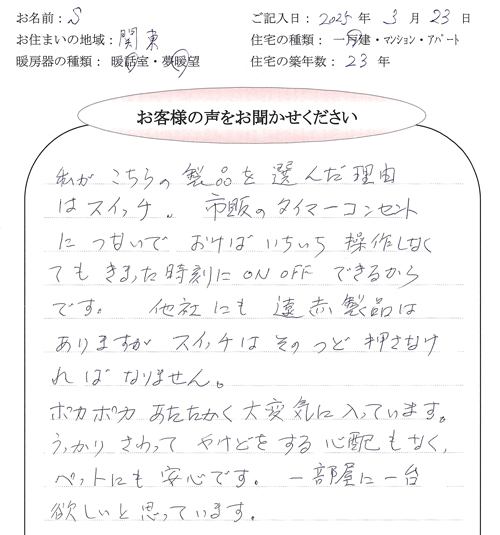 お名前：S
ご記入日：2025年 3月 23日
お住まいの地域：関東
住宅の種類：一戸建・マンション・アパート
暖房器の種類：暖話室・夢暖望
住宅の築年数：23年
お客様の声をお聞かせください
私が こちらの 製品を 選んだ 理由
は スイッチ。 市販の タイマーコンセント
に つないで おけば いちいち 操作しなく
ても きまった 時刻に ON OFF できるから
です。 他社にも 遠赤製品は
ありますが スイッチは そのつど 押さなけ
れば なりません。
ポカポカ あたたかく 大変気に入っています。
うっかり さわって やけどをする 心配もなく、
ペットにも 安心です。 一部屋に一台
欲しいと思っています。